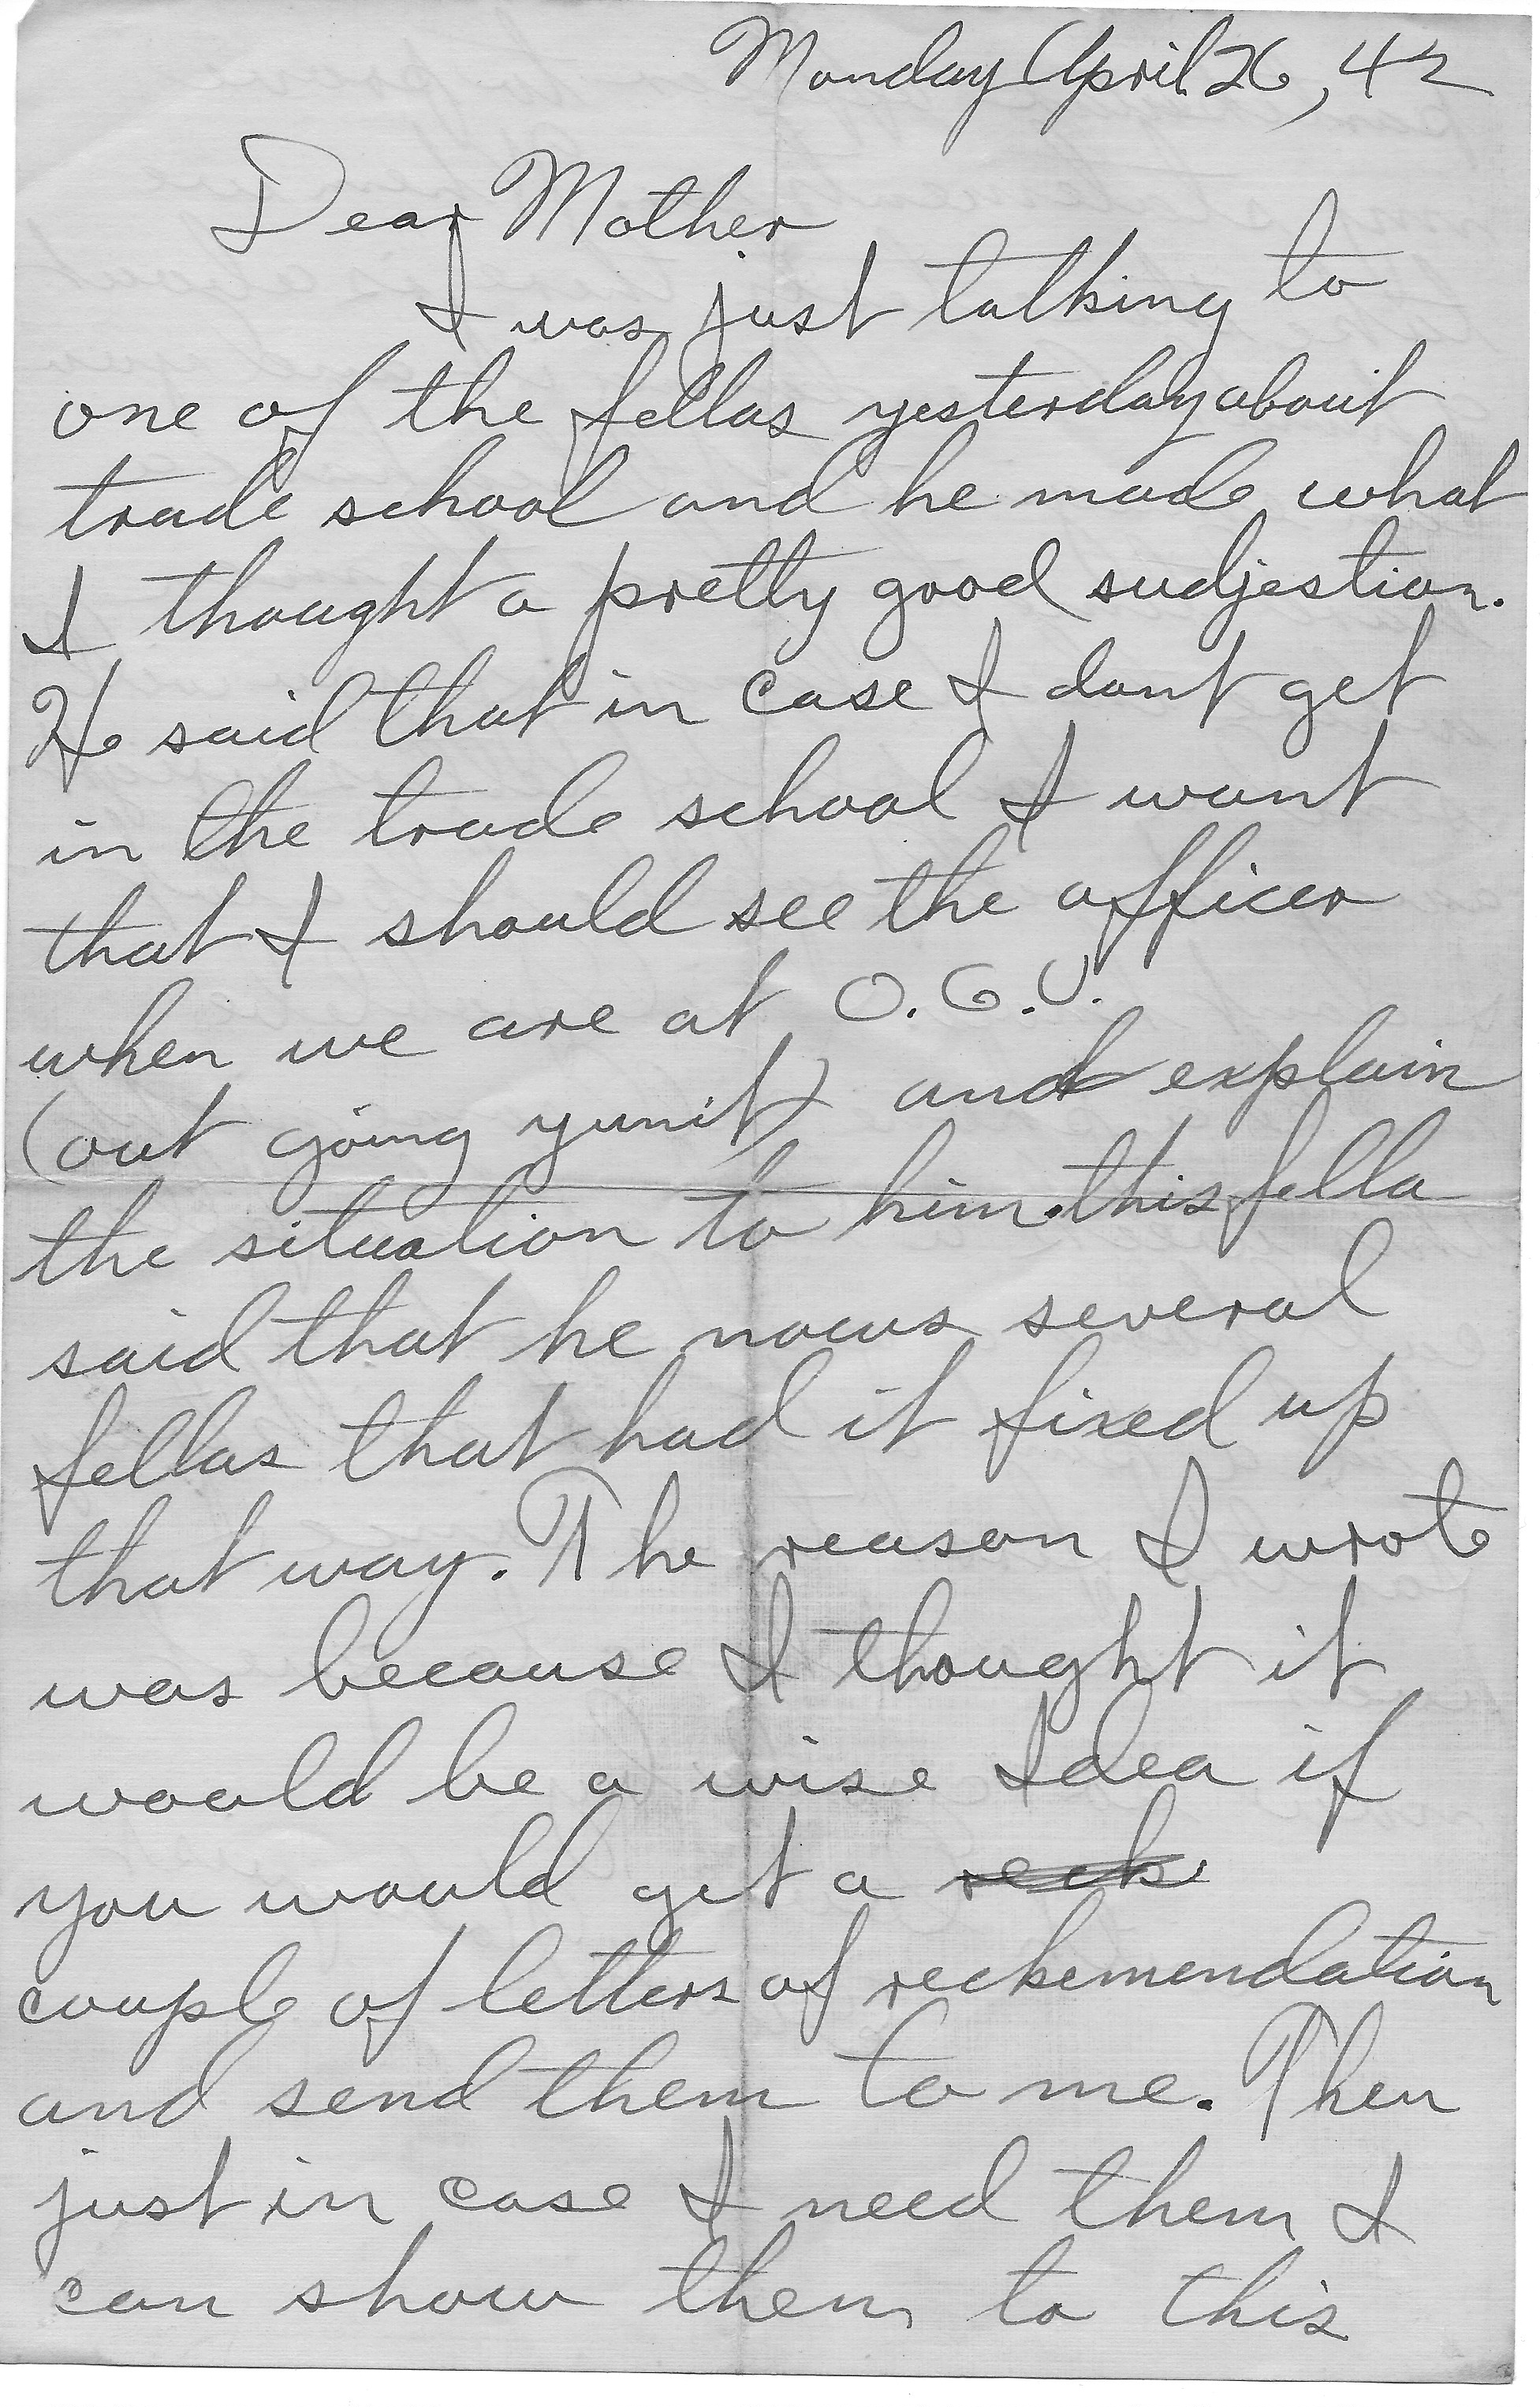 Monday April 26, 42
Dear Mother
I was just talking to
one of the fellas yesterday about
trade school and he made what
I thought a pretty good sudjestion.
He said that in case I dont get
in the trade school I want
that I should see the officer
when we are at O.G.U.
(out going yunit) and explain
the situation to him. this fella
said that he nows several
fellas that had it fixed up
that way. The reason I wrote
was because I thought it
would be a wise Idea if
you would get a reck
couple of letters of reckemendation
and send them to me. Then
just in case I need them I
can show them to this